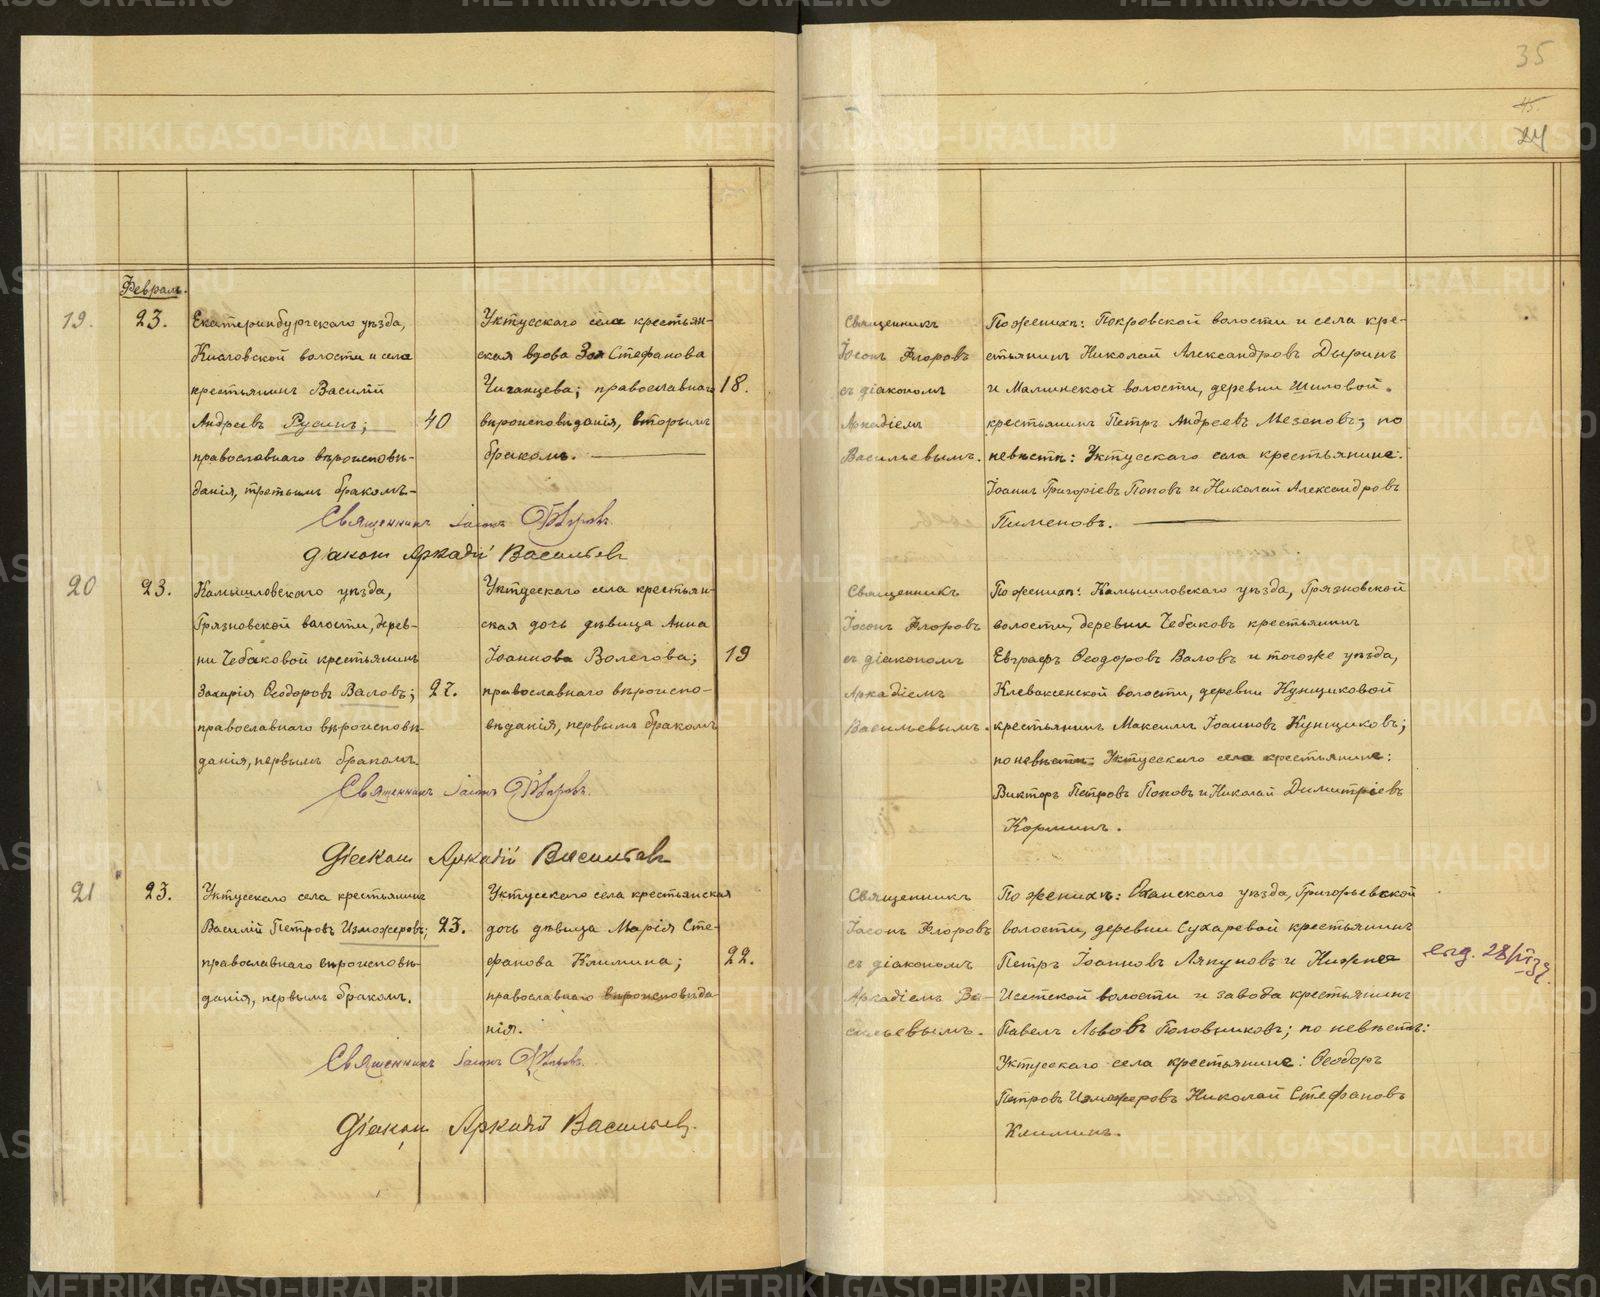 35
45.
24
Февраль.
19.
23.
Екатеринбургскаго уѣзда,
Кисловской волости и села
крестьянинъ Василій
Андреевъ Русинъ;
православнаго вѣроисповѣ-
данія, третьимъ бракомъ-
40
Уктусскаго села крестьян-
ская вдова Зоя Стефанова
православнаго
вѣроисповѣданія, вторымъ
бракомъ.
18.
Священникъ
Іасонъ Флоровъ
съ діакономъ
Аркадіемъ
Васильевымъ.
По женихѣ: Покровской волости и села кре-
стьянинъ Николай Александровъ Дыринъ
и Малинской волости, деревни Шиловой
крестьянинъ Петръ Андреевъ Мезеновъ; по
невѣстѣ: Уктусскаго села крестьяне:
Іоаннъ Григоріевъ Поповъ и Николай Александровъ
Пименовъ.
Священникъ Іасонъ Флоровъ
Діаконъ Аркадій Васильевъ
20
23.
Камышловскаго уѣзда,
Грязновской волости, дерев-
ни Чебаковой крестьянинъ
Захарія Ѳеодоровъ Валовъ;
православнаго вѣроисповѣ-
данія, первымъ бракомъ.
27.
Уктусскаго села крестьян-
ская дочь дѣвица Анна
Іоаннова Волегова;
православнаго вѣроиспо-
вѣданія, первымъ бракомъ
19
Священникъ
Іасонъ Флоровъ
съ діакономъ
Аркадіемъ
Васильевымъ.
По женихѣ: Камышловскаго уѣзда, Грязновской
волости, деревни Чебаковъ крестьянинъ
Евграфъ Ѳеодоровъ Валовъ и тогоже уѣзда,
Клевакинской волости, деревни Кунщиковой
крестьянинъ Максимъ Іоанновъ Кунщиковъ;
по невѣстѣ: Уктусскаго села крестьяне:
Викторъ Петровъ Поповъ и Николай Димитріевъ
Корминъ.
Священникъ Іасонъ Флоровъ.
Діаконъ Аркадій Васильевъ
21
23.
Уктусскаго села крестьянинъ
Василій Петровъ Изможеровъ;
православнаго вѣроисповѣ-
данія, первымъ бракомъ.
23.
Уктусскаго села крестьянская
дочь дѣвица Марія Сте-
фанова Климина;
православнаго вѣроисповѣда-
нія.
22.
Священникъ
Іасонъ Флоровъ
съ діакономъ
Аркадіемъ Ва-
сильевымъ.
По женихѣ: Оханскаго уѣзда, Григорьевской
волости, деревни Сухаревой крестьянинъ
Петръ Іоанновъ Ляпуновъ и Нижне
Исетской волости и завода крестьянинъ
Павелъ Львовъ Половниковъ; по невѣстѣ:
Уктусскаго села крестьяне: Ѳеодоръ
Петровъ Изможеровъ Николай Стефановъ
Климинъ.
Священникъ Іасонъ Флоровъ.
Діаконъ Аркадій Васильевъ.
METRIKI.GASO-URAL.RU